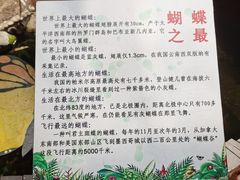 蝴蝶
之最
世界上最大的蝴蝶:
世界上最大的蝴蝶翅膀展开有30cm，产于太
平洋西南部的所罗门群岛和巴布亚新几内亚，它
的名字叫大鸟翼蝶。
世界上最小的蝴蝶:
最小的蝴蝶是蓝灰蝶，翅展仅1.3cm，在我国云南西双版纳有
采集记录。
生活在最高地方的蝴蝶:
我国的帕米尔高原最高处有七千多米，登山健儿曾在海拔六
千七百左右的冰川裂缝里看到过一种紫酱色的小灰蝶。
生活在最北方的蝴蝶:
在北纬83度的地方，已是北极圈内，距离北极中心只有700多
千米，这里气候严寒，在仍能看见有灰蝶顽强在那里飞舞。
飞行最远的蝴蝶:
一种叫君主斑蝶的蝴蝶，每年的11月至次年3月，从加拿大
东南部和美国东部山区飞到墨西哥城以西二百公里处的“蝴蝶谷”
这段飞行距离约5000千米。